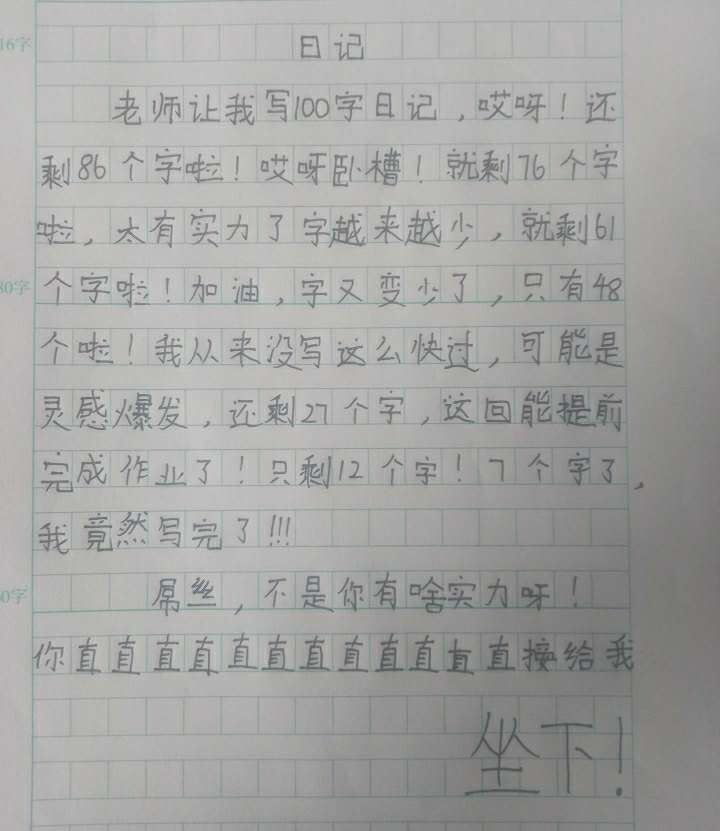 16字
日记
老师让我写100字日记，哎呀！还
剩86个字啦！哎呀卧槽！就剩76个字
啦，太有实力了字越来越少，就剩61
80字
个字啦！加油，字又变少了，只有48
个啦！我从来没写这么快过，可能是
灵感爆发，还剩27个字，这回能提前
完成作业了！只剩12个字！7个字了，
我竟然写完了!!!
0字
屌丝，不是你有啥实力呀！
你直直直直直直直直直直直直接给我
坐下！